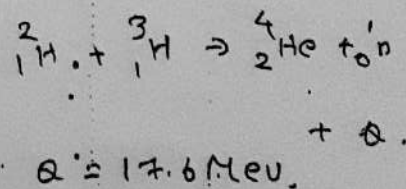 ²₁H + ³₁H ⇒ ⁴₂He + ¹₀n
+ Q.
Q = 17.6 MeV.